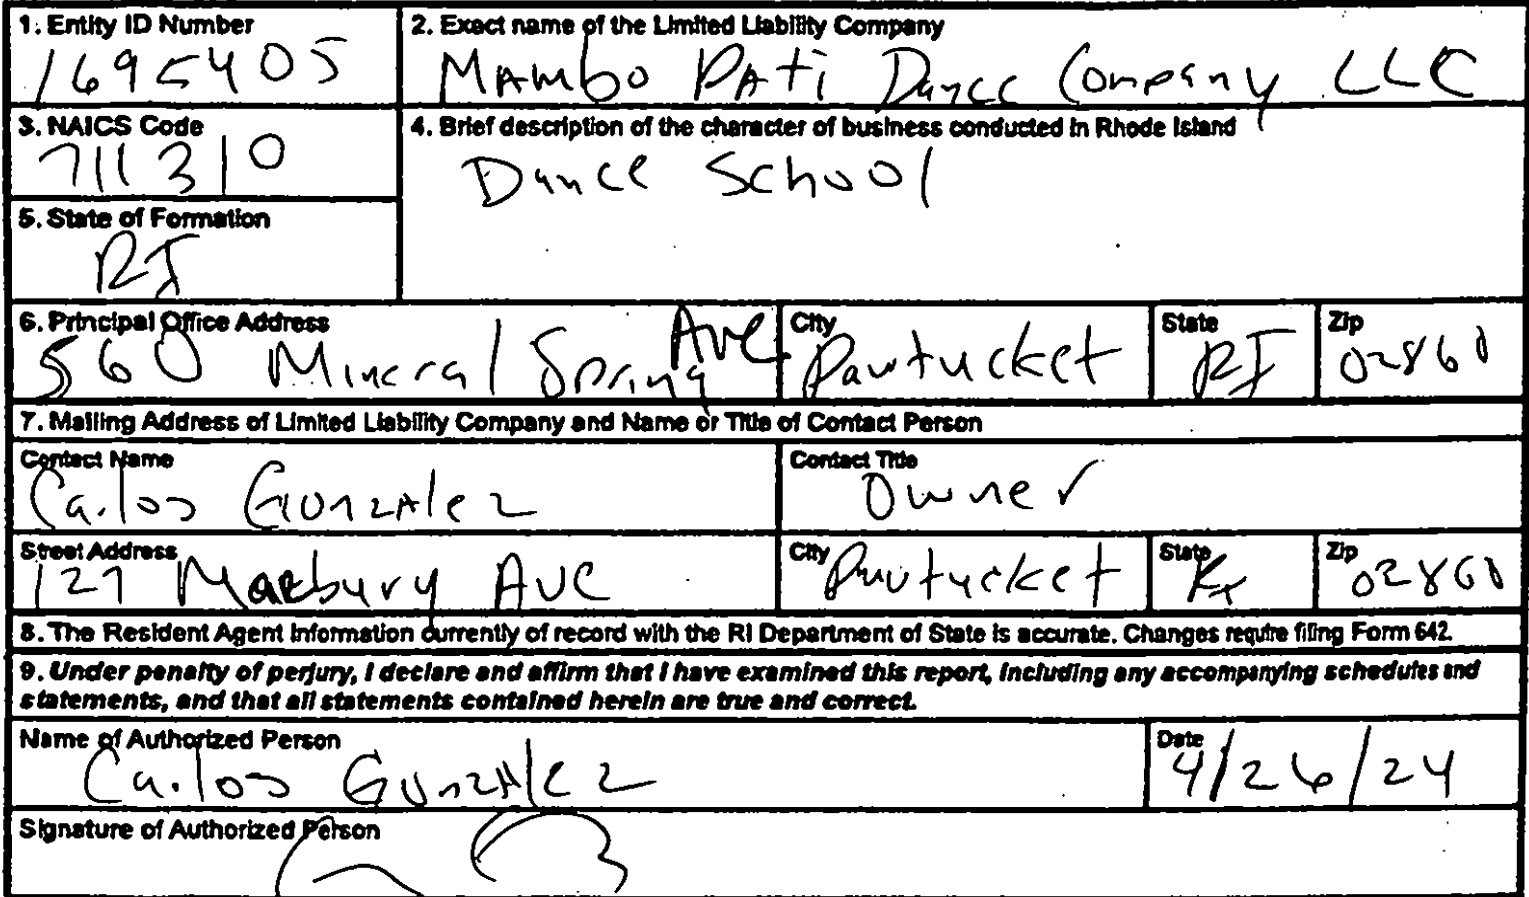 1. Entity ID Number
1695405
2. Exact name of the Limited Liability Company
MAmbo PATi Dance Company LLC
3. NAICS Code
711310
4. Brief description of the character of business conducted in Rhode Island
Dance School
5. State of Formation
RI
6. Principal Office Address
560 Mineral Spring Ave
City
Pawtucket
State
RI
Zip
02860
7. Mailing Address of Limited Liability Company and Name or Title of Contact Person
Contact Name
Carlos GonzAlez
Contact Title
Owner
Street Address
127 Marbury Ave
City
Pawtucket
State
RI
Zip
02860
8. The Resident Agent Information currently of record with the RI Department of State is accurate. Changes require filing Form 642.
9. Under penalty of perjury, I declare and affirm that I have examined this report, including any accompanying schedules and
statements, and that all statements contained herein are true and correct.
Name of Authorized Person
Carlos GonzAlez
Date
4/26/24
Signature of Authorized Person